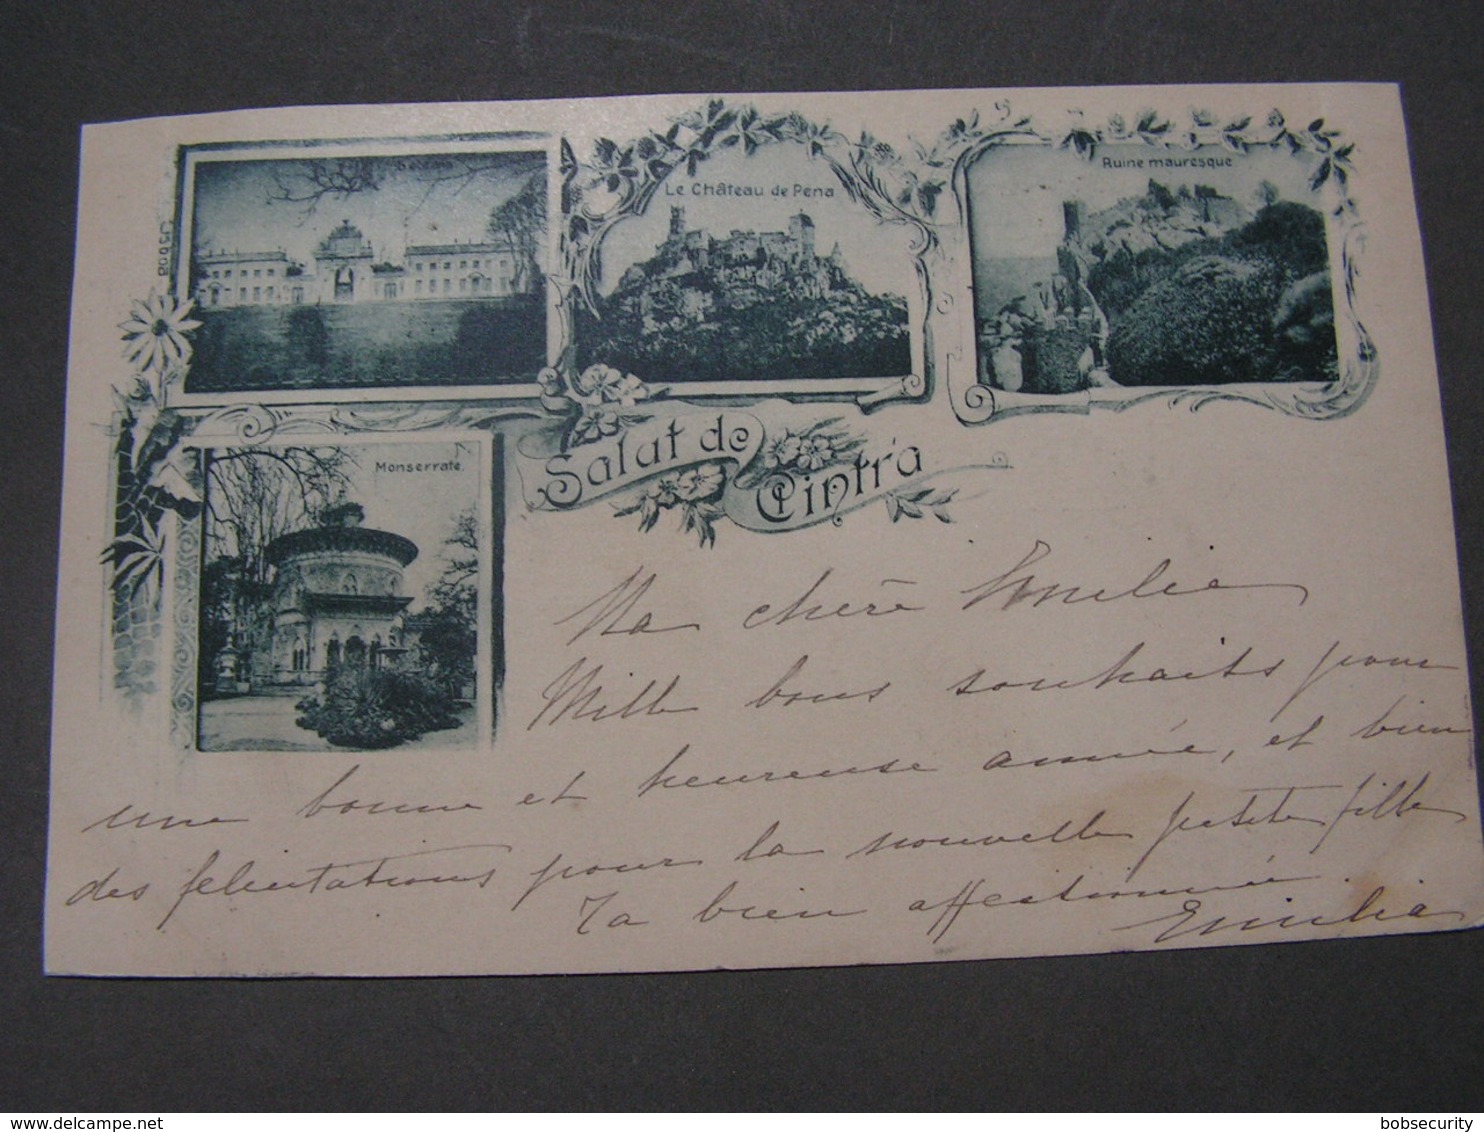 Le Château de Pena
Ruine mauresque
Monserrate.
Salut de
Cintra
Ma chère Emilia
Mille bons souhaits pour
une bonne et heureuse année, et bien
des felicitations pour la nouvelle petite fille
Ta bien affectionnée
Emilia
bobsecurity